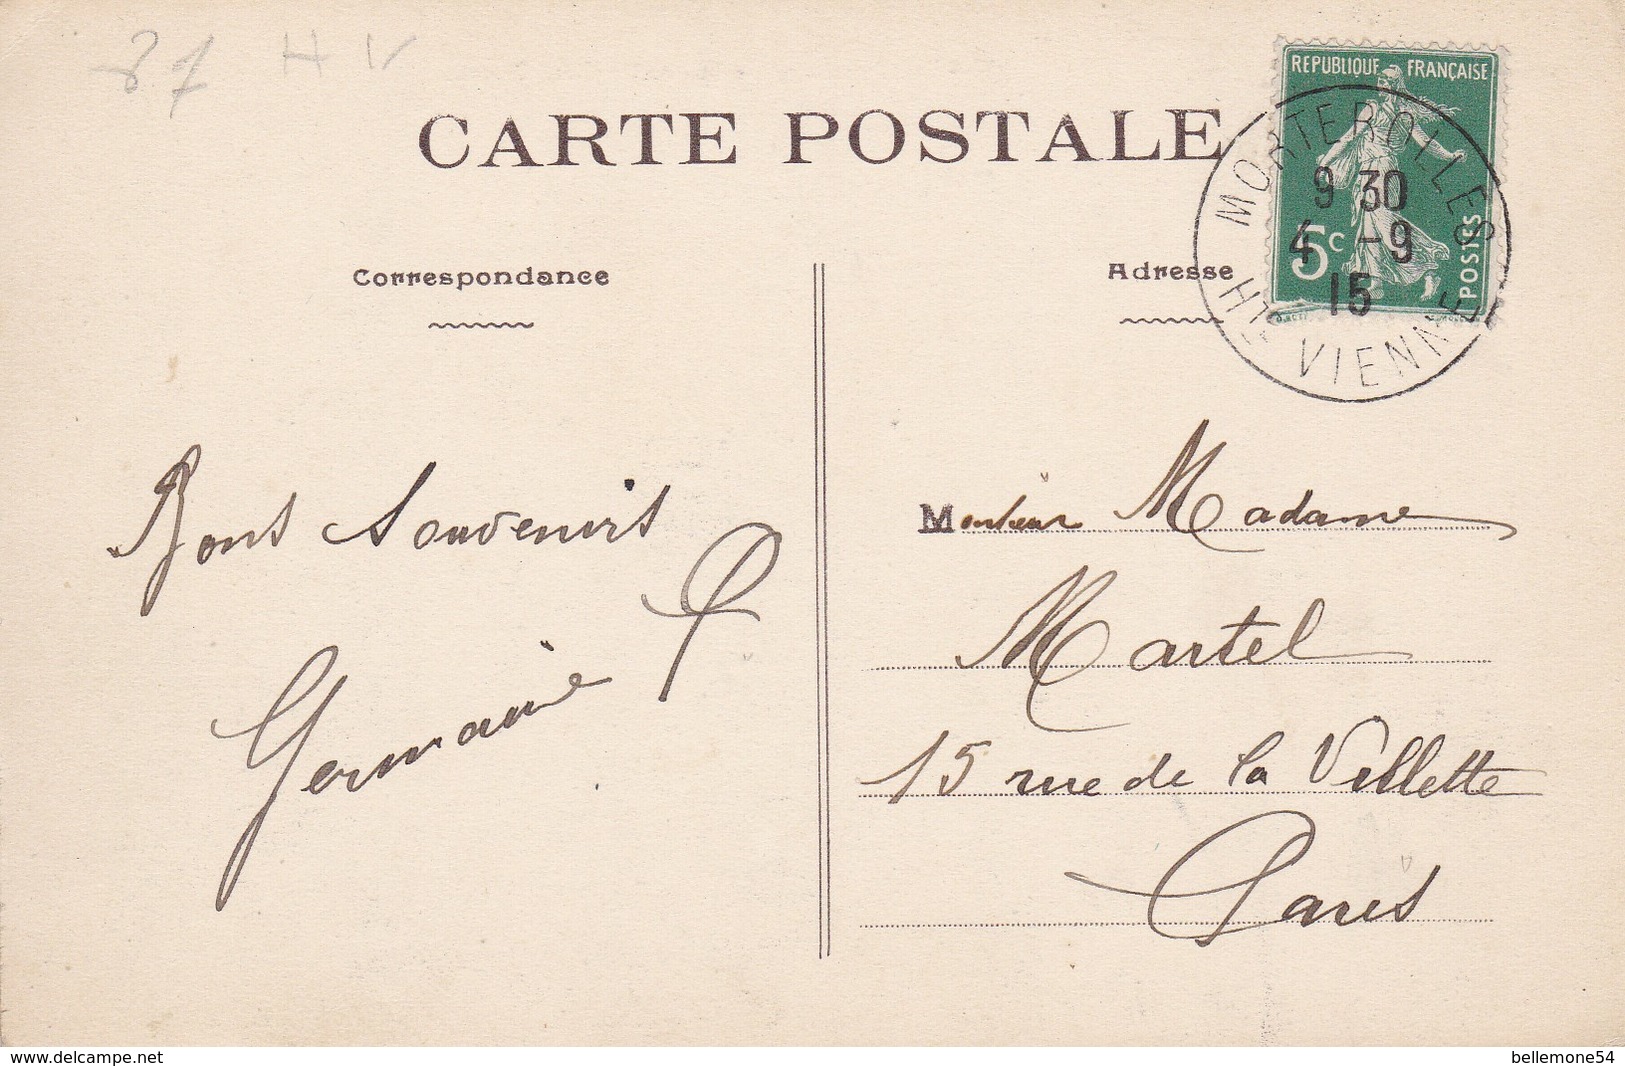 87 HV
CARTE POSTALE
REPUBLIQUE FRANÇAISE
5c
POSTES
MORTEROLLES
9 30
4 -9
15
HTE VIENNE
Correspondance
Adresse
Bons Souvenirs
Germaine
Monsieur Madame
Martel
15 rue de la Villette
Paris
www.delcampe.net
bellemone54